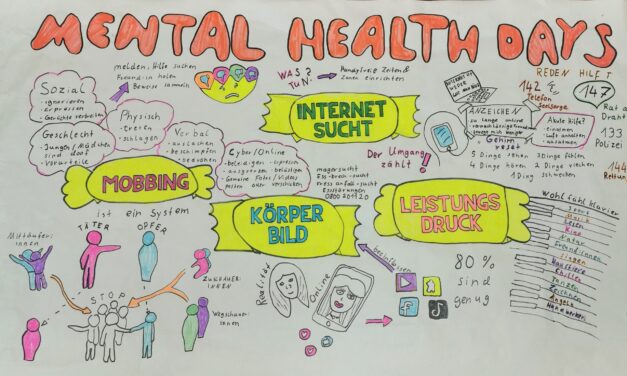 MENTAL HEALTH DAYS
melden, Hilfe suchen
Freund:in holen
Beweise sammeln
Sozial
- ignorieren
- erpressen
- Gerüchte verbreiten
Physisch
- treten
- schlagen
Geschlecht
- Jungen/Mädchen
sind doof
- Vorurteile
Verbal
- auslachen
- beschimpfen
- bedrohen
Cyber/Online
- beleidigen
- erpressen
- ausgrenzen
- belästigen
- Gemeine Fotos/Videos
posten oder verschicken
WAS?
TUN?
Handyfreie Zeiten &
Zonen einrichten
INTERNET
SUCHT
ANZEICHEN
zu lange online
REDEN HILFT
142
Telefon
Seelsorge
147
Rat a
Draht
133
Polizei
144
Rettun
Akute Hilfe?
- einatmen
- Luft anhalten
- ausatmen
Gehirn
reset
5 Dinge sehen
4 Dinge hören
3 Dinge fühlen
2 Dinge riechen
1 Ding schmecken
Der Umgang
zählt!
MOBBING
ist ein System
Magersucht
Ess-brech-sucht
Essstörungen
0800 201120
KÖRPER
BILD
LEISTUNGS
DRUCK
Mitläufer:
innen
TÄTER
OPFER
ZUSCHAUER:
INNEN
STOP
Wegschauer:
innen
Realität
Online
beeinflussen
80 %
sind
genug
Wohlfühlklavier
Sport
Musik
Lesen
Kino
Natur
Freund:innen
Singen
Haustiere
Chillen
Tanzen
Zeichnen
Angeln
Handwerken